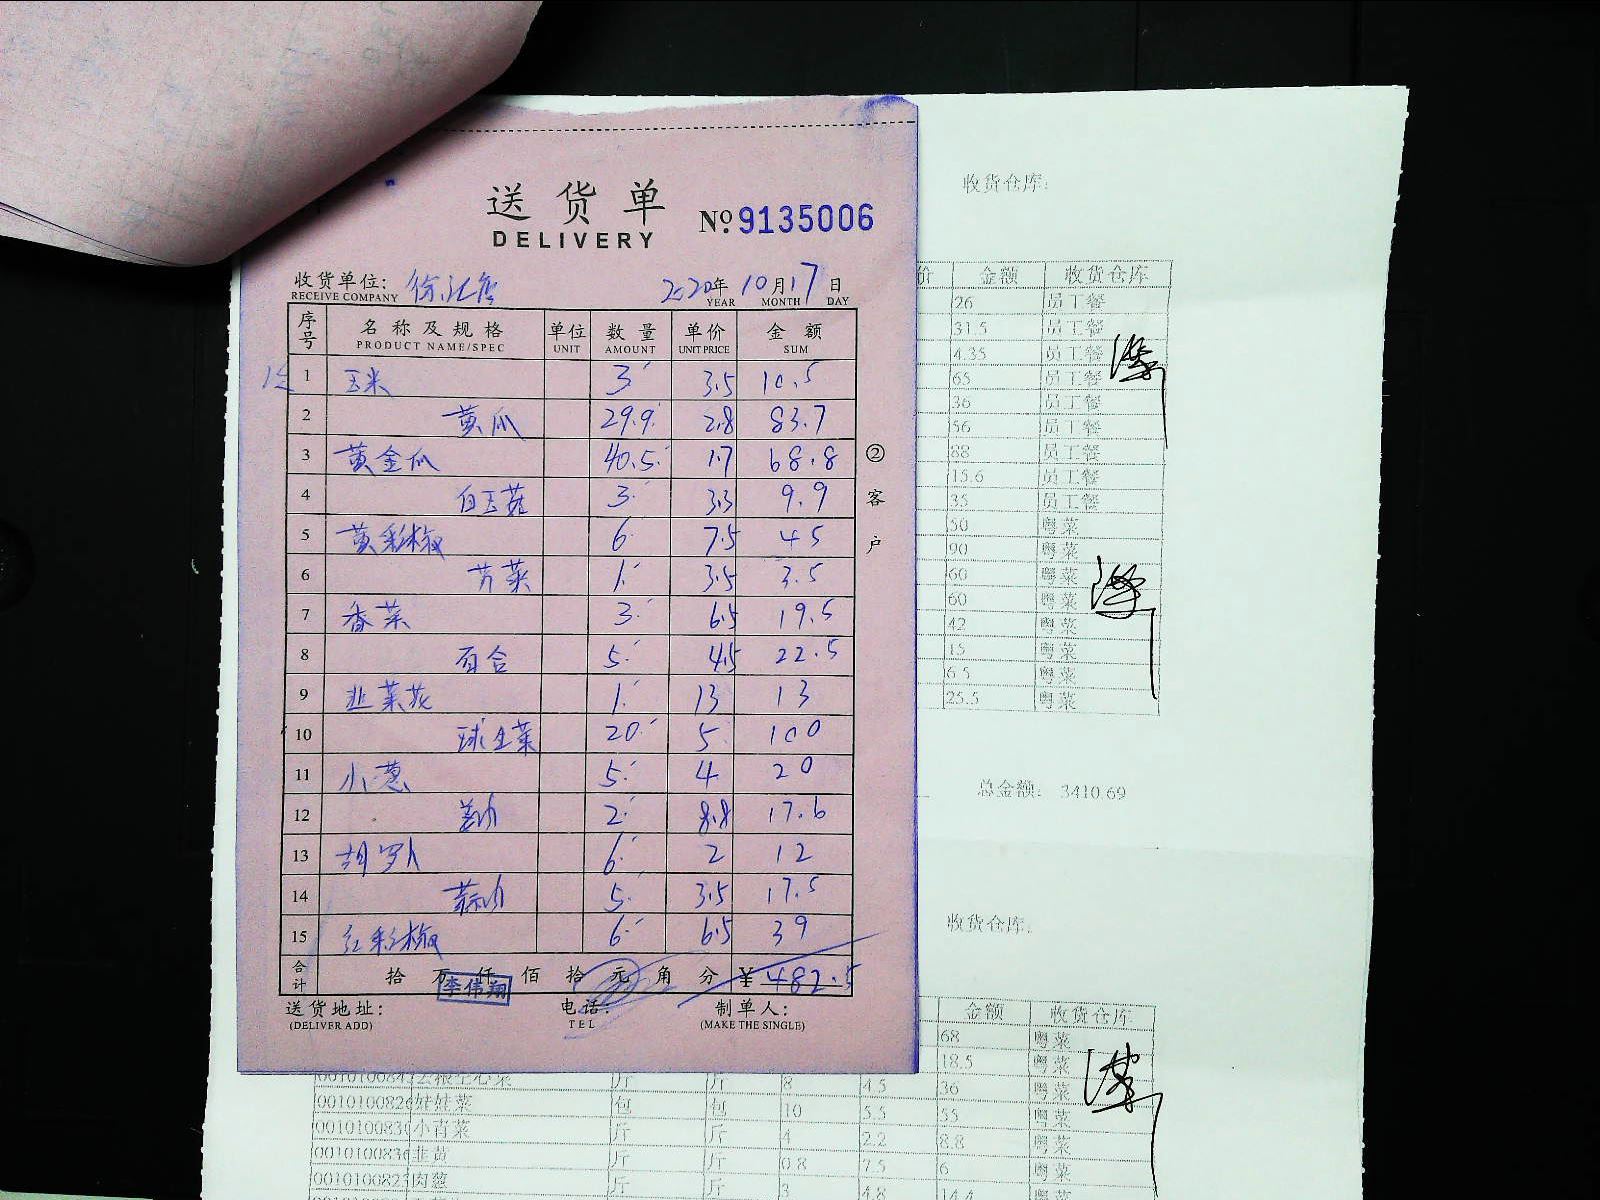 送货单
DELIVERY
№ 9135006
收货单位:
RECEIVE COMPANY
2020年 10月17日
YEAR MONTH DAY
序号 名称及规格 单位 数量 单价 金额
PRODUCT NAME/SPEC UNIT AMOUNT UNIT PRICE SUM
1 玉米 3 3.5 10.5
2 黄瓜 29.9 2.8 83.7
3 黄金瓜 40.5 1.7 68.8
4 白玉菇 3 3.3 9.9
5 黄彩椒 6 7.5 45
6 芹菜 1 3.5 3.5
7 香菜 3 6.5 19.5
8 百合 5 4.5 22.5
9 韭菜花 1 13 13
10 球生菜 20 5 100
11 小葱 5 4 20
12 8.8 17.6
13 胡罗卜 6 2 12
14 5 3.5 17.5
15 红彩椒 6 6.5 39
合计 拾 万 仟 佰 拾 元 角 分 ¥ 482.5
李伟翔
送货地址: 电话: 制单人:
(DELIVER ADD) TEL (MAKE THE SINGLE)
②客户
收货仓库:
价 金额 收货仓库
26 员工餐
31.5 员工餐
4.35 员工餐
65 员工餐
36 员工餐
56 员工餐
88 员工餐
15.6 员工餐
35 员工餐
50 粤菜
90 粤菜
60 粤菜
60 粤菜
42 粤菜
15 粤菜
6.5 粤菜
25.5 粤菜
总金额: 3410.69
收货仓库:
金额 收货仓库
68 粤菜
18.5 粤菜
空心菜 斤 斤 8 4.5 36 粤菜
娃娃菜 包 包 10 5.5 55 粤菜
小青菜 斤 斤 4 2.2 8.8 粤菜
韭黄 斤 斤 0.8 7.5 6 粤菜
肉葱 斤 斤 3 4.8 14.4 粤菜